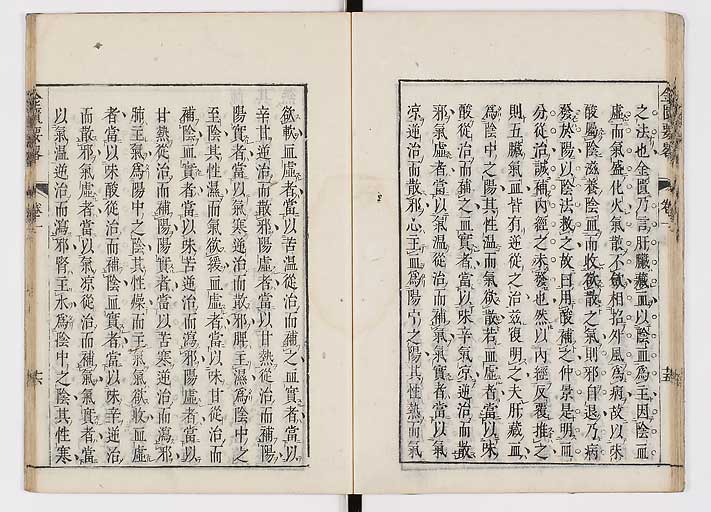 之法也金匱乃言肝臟藏血以陰血爲主因陰血
虛而氣盛化火氣散不斂相招外風爲病故以味
酸屬陰滋養陰血而收斂散之氣則邪自退乃病
發於陽以陰法救之故曰用酸補之仲景是明血
分從治誠補內經之未發也然以內經反覆推之
則五臟氣血皆有逆從之治茲復明之夫肝藏血
爲陰中之陽其性溫而氣欲散若血虛者當以味
酸從治而補之血實者當以味辛氣凉逆治而散
邪氣虛者當以氣溫從治而補氣氣實者當以氣
凉逆治而散邪心主血爲陽中之陽其性熱而氣
欲軟血虛者當以苦溫從治而補之血實者當以
辛甘逆治而散邪陽虛者當以甘熱從治而補陽
陽實者當以氣寒逆治而散邪脾主濕爲陰中之
至陰其性濕而氣欲緩血虛者當以味甘從治而
補陰血實者當以味苦逆治而瀉邪陽虛者當以
甘熱從治而補陽陽實者當以苦寒逆治而瀉邪
肺主氣爲陽中之陰其性燥而主氣氣欲收血虛
者當以味酸從治而補陰血實者當以味辛逆治
而散邪氣虛者當以氣凉從治而補氣氣實者當
以氣溫逆治而瀉邪腎主水爲陰中之陰其性寒
金匱要畧
卷一
十五
金匱要畧
卷一
十六